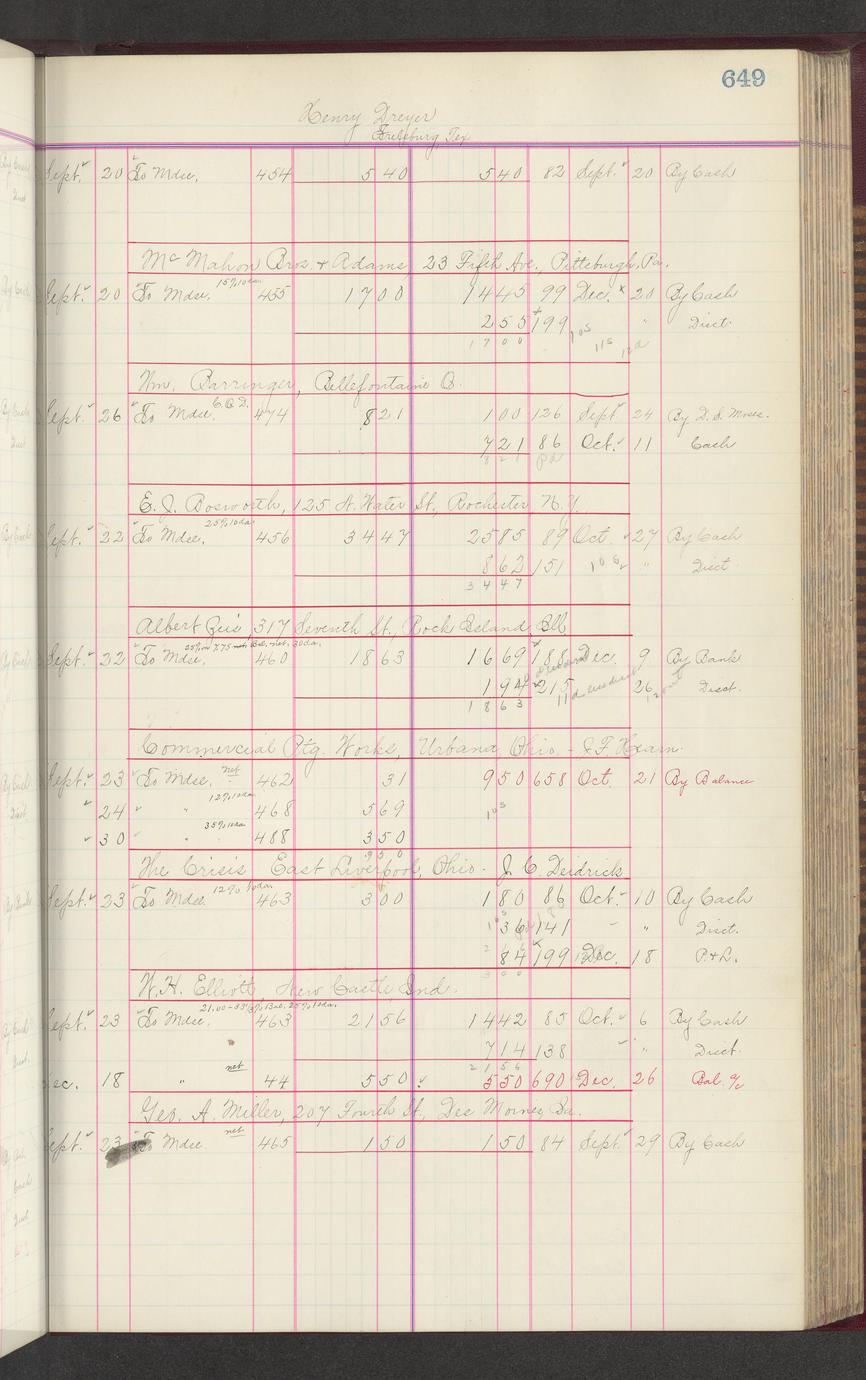 649
Henry Dreyer
Frelsburg Tex
Sept. 20 To Mdse. 454 5 40 5 40 82 Sept. 20 By Cash
Mc Mahon Bros. & Adams 23 Fifth Ave., Pittsburgh, Pa.
15% 10da.
Sept. 20 To Mdse. 455 17 00 14 45 99 Dec. 20 By Cash
2 55 199 " Disct.
17 00
Wm. Barringer, Bellefontaine O.
C.O.D.
Sept. 26 To Mdse. 474 8 21 1 00 126 Sept 24 By D. S. Moses.
7 21 86 Oct. 11 Cash
8 21 pd
E. J. Bosworth, 125 N. Water St., Rochester N.Y.
25% 10da.
Sept. 22 To Mdse. 456 34 47 25 85 89 Oct. 27 By Cash
8 62 151 " Disct.
34 47
Albert 317 Seventh St., Rock Island, Ill
Sept. 22 To Mdse. 460 18 63 16 69 188 Dec. 9 By Bank
1 94 215 26 Disct.
18 63
Commercial Ptg. Works, Urbana, Ohio - J F Hearn.
Sept. 23 To Mdse. net 462 31 9 50 658 Oct. 21 By Balance
12% 10da.
" 24 " " 468 5 69
35% 10da.
" 30 " " 488 3 50
9 50
The Crisis East Liverpool, Ohio. J. C. Deidrick
12% 10da.
Sept. 23 To Mdse. 463 3 00 1 80 86 Oct. 10 By Cash
36 141 " " Disct.
84 199 Dec. 18 P. & L.
3 00
W. H. Elliott, New Castle Ind.
21.00-33⅓% Bal. 25% 10da.
Sept. 23 To Mdse. 463 21 56 14 42 85 Oct. 6 By Cash
7 14 138 " " Disct.
21 56
Dec. 18 " net 44 5 50 5 50 690 Dec. 26 Bal. %
Geo. A. Miller, 207 Fourth St., Des Moines, Ia.
Sept. 23 To Mdse. net 465 1 50 1 50 84 Sept. 29 By Cash